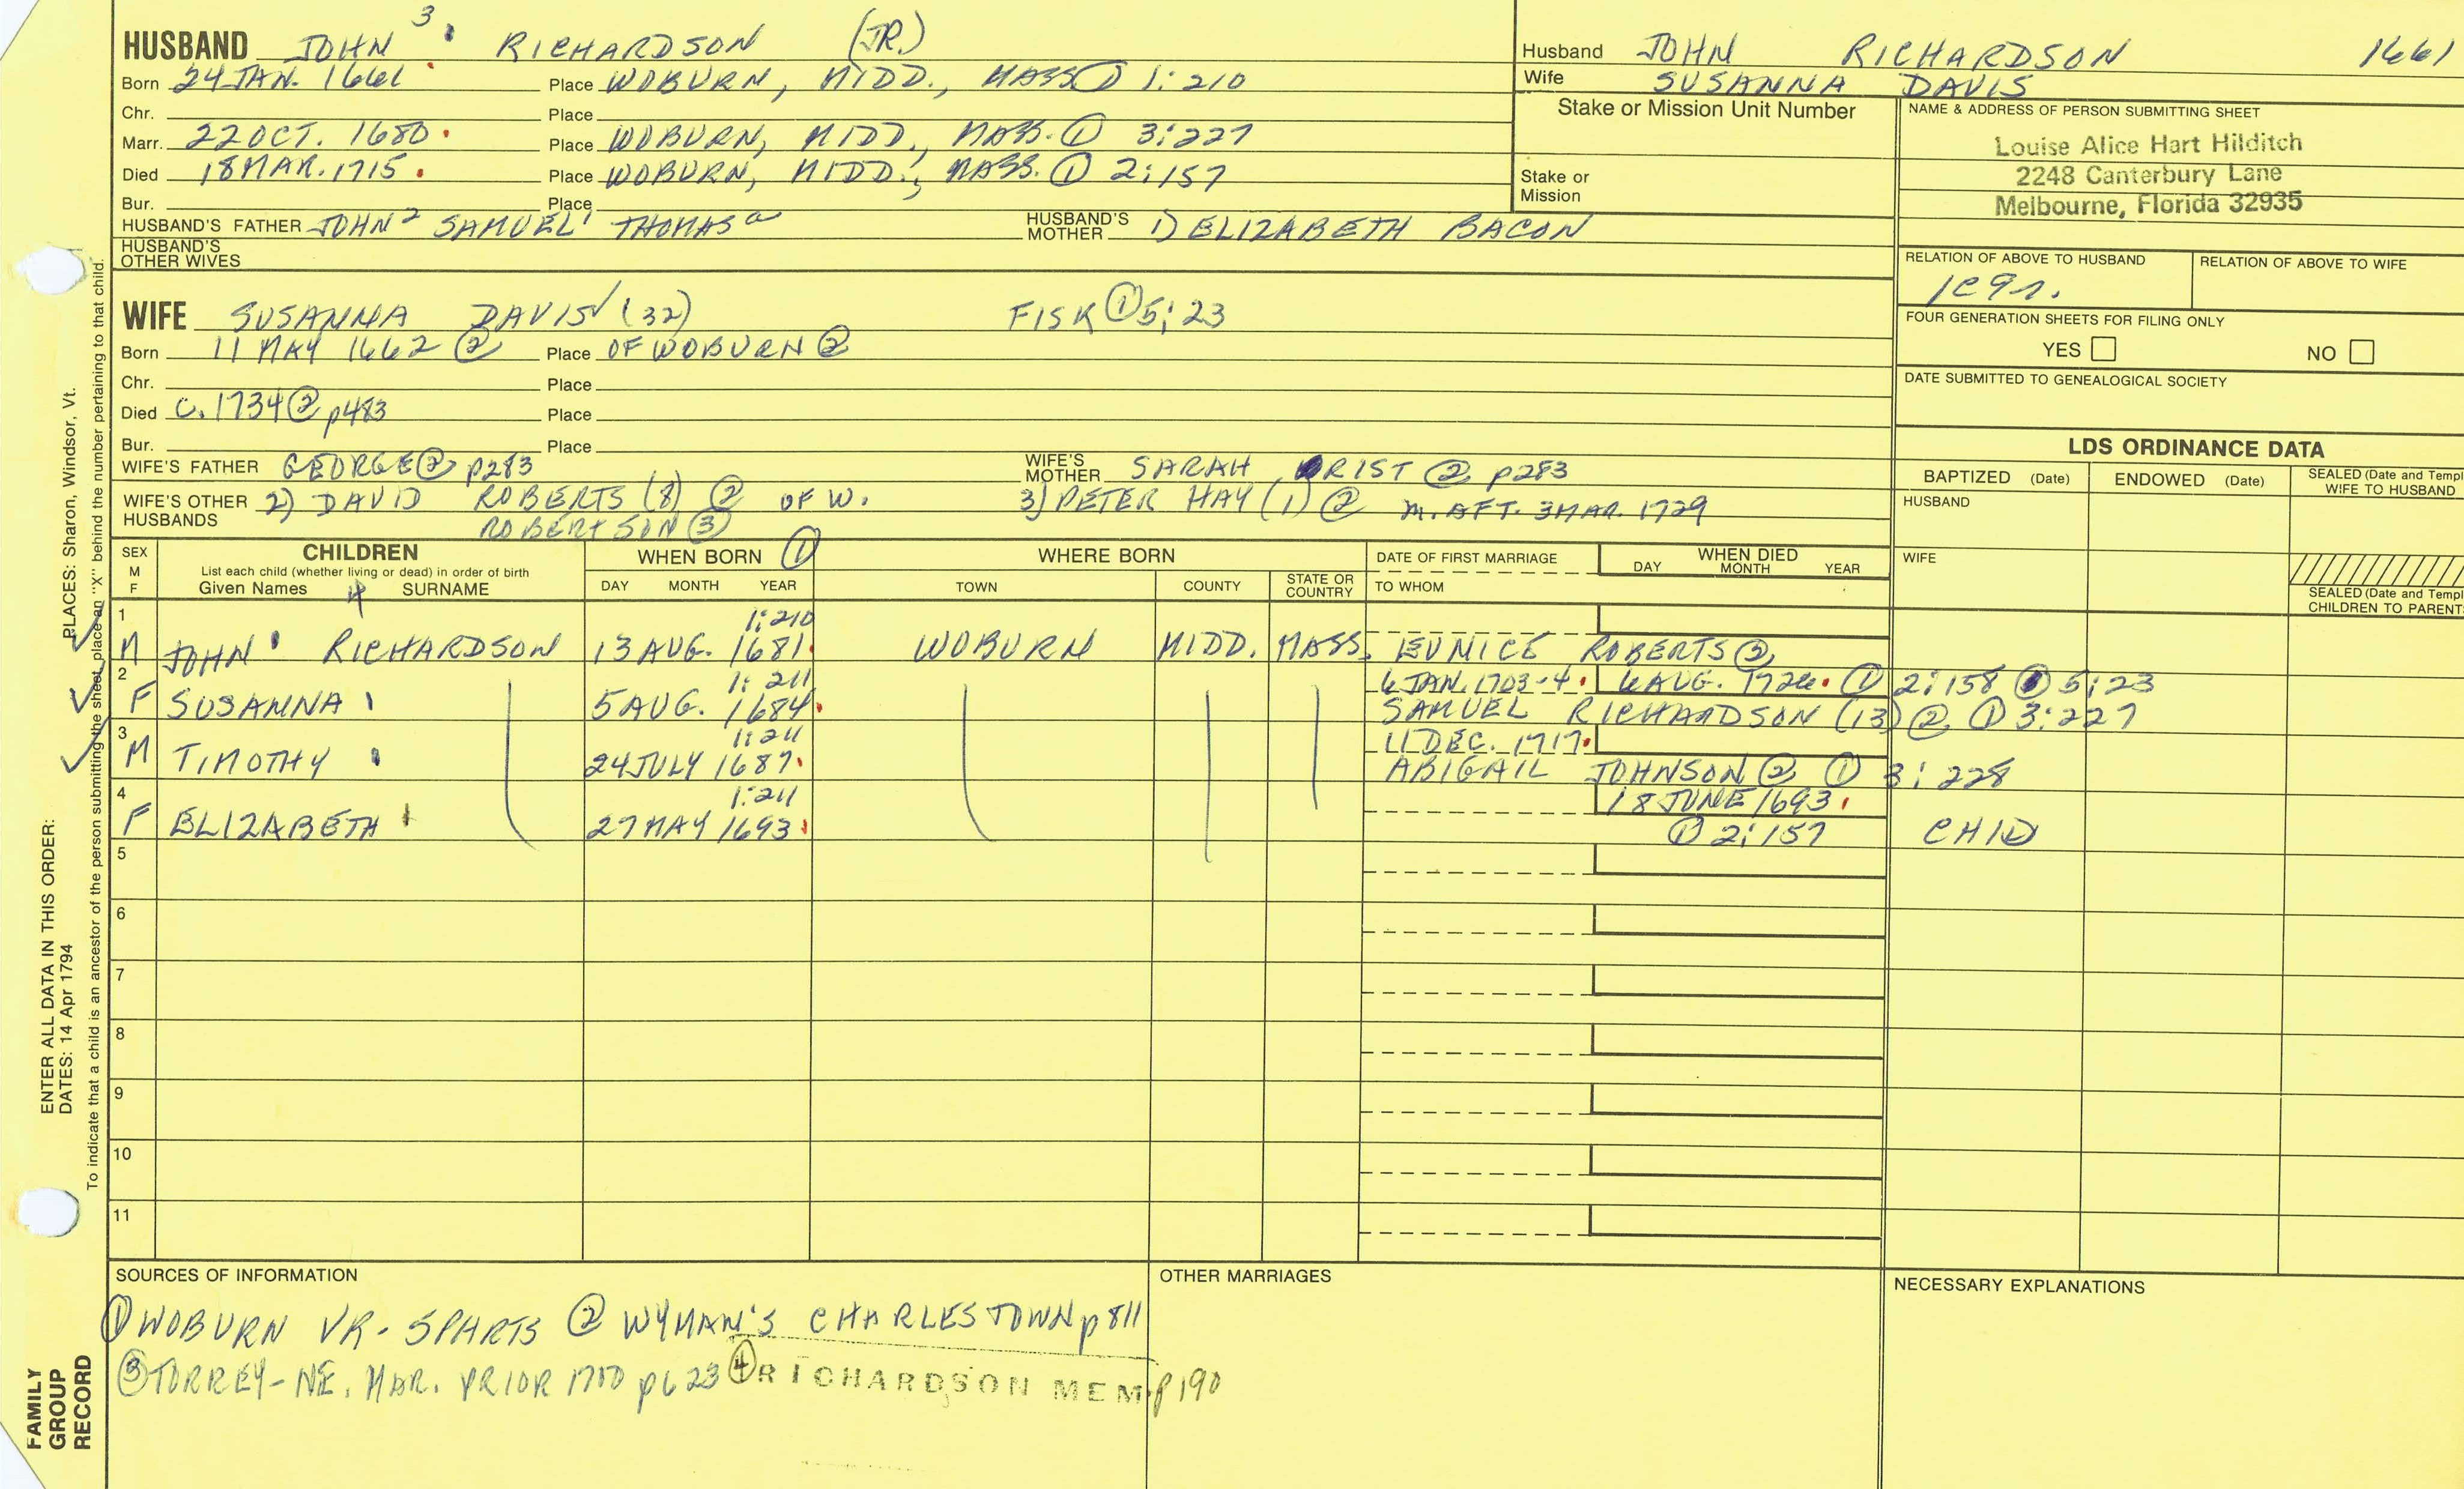 3
HUSBAND JOHN RICHARDSON (JR.)
Born 24 JAN. 1661 Place WOBURN, MIDD., MASS ① 1:210
Chr. Place
Marr. 22 OCT. 1680 Place WOBURN, MIDD., MASS. ① 3:227
Died 18 MAR. 1715 Place WOBURN, MIDD., MASS. ① 2:157
Bur. Place
HUSBAND'S FATHER JOHN² SAMUEL¹ THOMASᵃ HUSBAND'S MOTHER 1) ELIZABETH BACON
HUSBAND'S OTHER WIVES
Husband JOHN RICHARDSON 1661
Wife SUSANNA DAVIS
Stake or Mission Unit Number
Stake or
Mission
NAME & ADDRESS OF PERSON SUBMITTING SHEET
Louise Alice Hart Hilditch
2248 Canterbury Lane
Melbourne, Florida 32935
RELATION OF ABOVE TO HUSBAND RELATION OF ABOVE TO WIFE
FOUR GENERATION SHEETS FOR FILING ONLY
YES NO
DATE SUBMITTED TO GENEALOGICAL SOCIETY
WIFE SUSANNA DAVIS (32) FISK ① 5:23
Born 11 MAY 1662 ② Place OF WOBURN ②
Chr. Place
Died C. 1734 ② p483 Place
Bur. Place
WIFE'S FATHER GEORGE ② p283 WIFE'S MOTHER SARAH RIST ② p283
WIFE'S OTHER HUSBANDS 2) DAVID ROBERTS (8) ② OF W. 3) PETER HAY (1) ② M. AFT. 3 MAR. 1729
ROBERTSON ③
LDS ORDINANCE DATA
BAPTIZED (Date) ENDOWED (Date) SEALED (Date and Templ
WIFE TO HUSBAND
HUSBAND
WIFE
SEALED (Date and Templ
CHILDREN TO PARENT
SEX M F CHILDREN WHEN BORN ① WHERE BORN DATE OF FIRST MARRIAGE WHEN DIED
List each child (whether living or dead) in order of birth
Given Names 4 SURNAME DAY MONTH YEAR TOWN COUNTY STATE OR COUNTRY TO WHOM DAY MONTH YEAR
1 1:210
M JOHN RICHARDSON 13 AUG. 1681 WOBURN MIDD. MASS. EUNICE ROBERTS ②
2 1:211 6 JAN. 1703-4 ① 2:158 ① 5:23
F SUSANNA 5 AUG. 1684 SAMUEL RICHARDSON (13) ② ① 3:227
3 1:211 11 DEC. 1717
M TIMOTHY 24 JULY 1687 ABIGAIL JOHNSON ② ① 3:228
4 1:211 18 JUNE 1693
F ELIZABETH 27 MAY 1693 ① 2:157 CHID
5
6
7
8
9
10
11
SOURCES OF INFORMATION OTHER MARRIAGES NECESSARY EXPLANATIONS
① WOBURN VR - 5 PARTS ② WYMAN'S CHARLESTOWN p 811
③ TORREY - NE. MAR. PRIOR 1700 p623 ④ RICHARDSON MEM. p190
PLACES: Sharon, Windsor, Vt.
ENTER ALL DATA IN THIS ORDER:
DATES: 14 Apr 1794
To indicate that a child is an ancestor of the person submitting the sheet, place an "X" behind the number pertaining to that child.
FAMILY
GROUP
RECORD